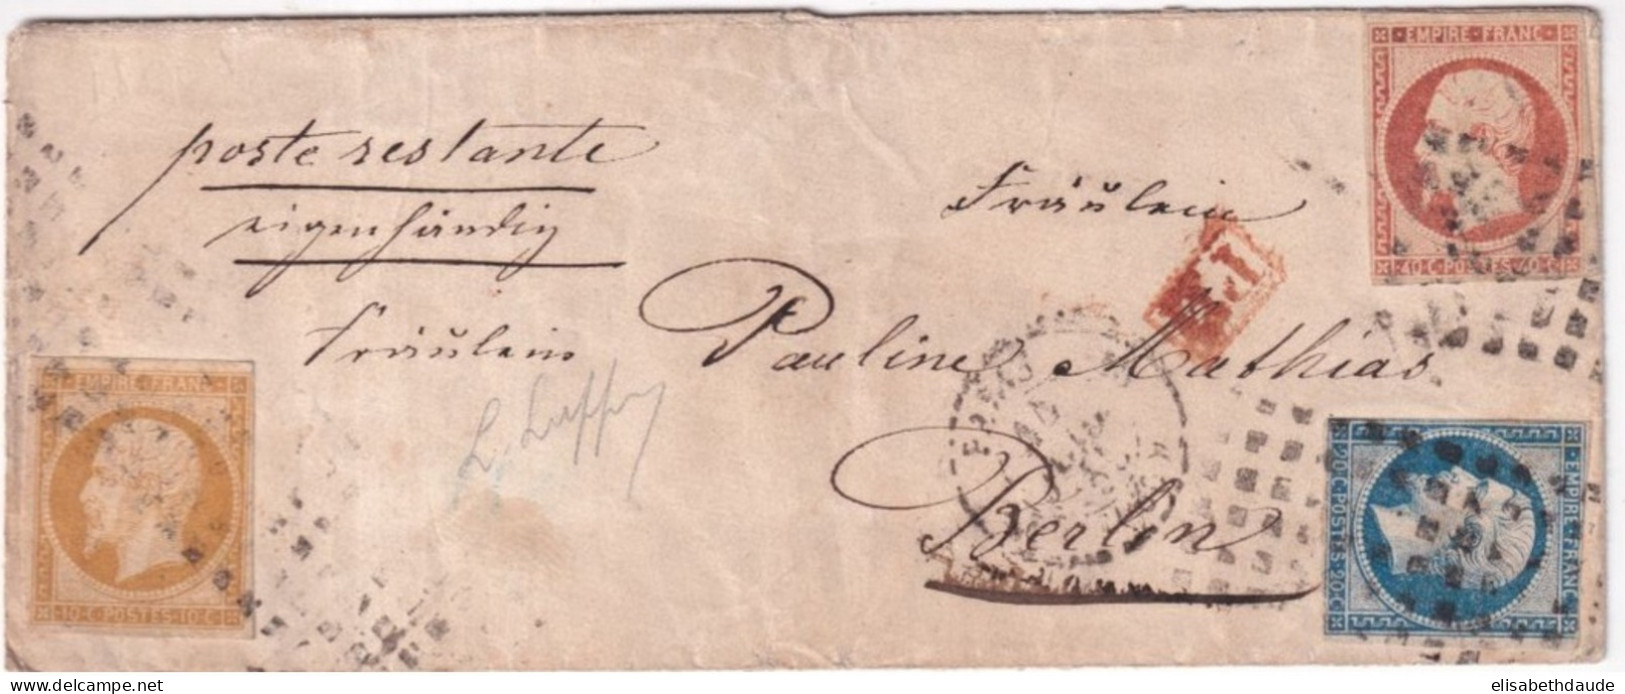 EMPIRE · FRANC ·
poste restante
Fräulein
eigenhändig
· 40 · C · POSTES · 40 · C ·
Fräulein
Pauline Mathias
EMPIRE · FRANC ·
Berlin
EMPIRE · FRANC ·
20 · C · POSTES · 20 · C
· 10 · C · POSTES · 10 · C ·
www.delcampe.net
elisabethdaude